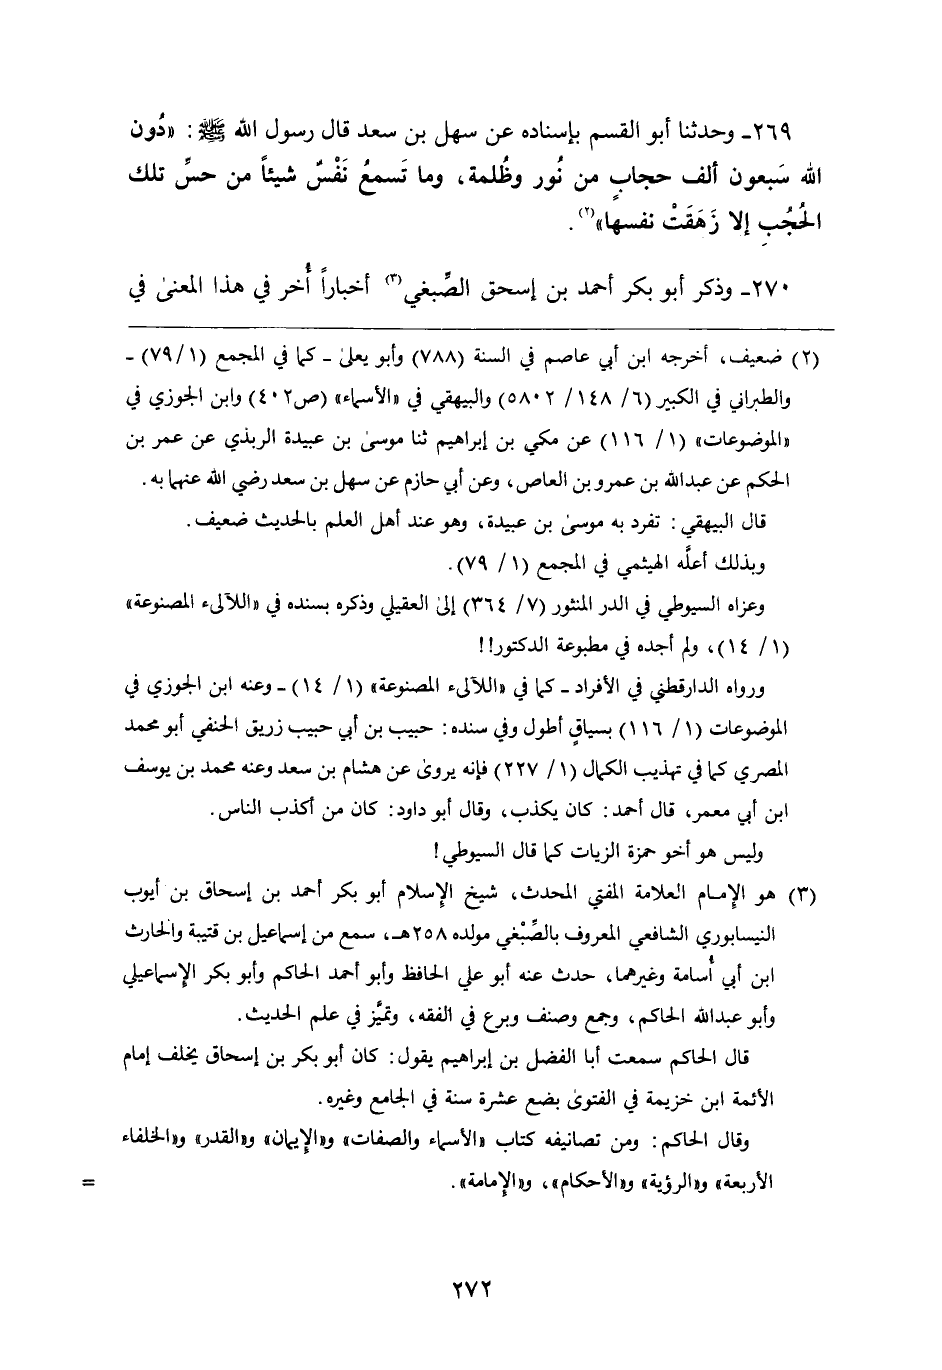 ٢٦٩ـ وحدثنا أبو القسم بإسناده عن سهل بن سعد قال رسول الله ﷺ: «دُون
الله سَبعون ألف حجابٍ من نُور وظُلمة، وما تَسمعُ نَفْسٌ شيئاً من حسِّ تلك
الحُجُبِ إلا زَهَقَتْ نفسها»(٢).
٢٧٠ـ وذكر أبو بكر أحمد بن إسحق الصِّبغي(٣) أخباراً أُخر في هذا المعنىٰ في
(٢) ضعيف، أخرجه ابن أبي عاصم في السنة (٧٨٨) وأبو يعلىٰ ـ كما في المجمع (٧٩/١) ـ
والطبراني في الكبير (٦/ ١٤٨/ ٥٨٠٢) والبيهقي في «الأسماء» (ص٤٠٢) وابن الجوزي في
«الموضوعات» (١/ ١١٦) عن مكي بن إبراهيم ثنا موسىٰ بن عبيدة الربذي عن عمر بن
الحكم عن عبدالله بن عمرو بن العاص، وعن أبي حازم عن سهل بن سعد رضي الله عنهما به.
قال البيهقي: تفرد به موسىٰ بن عبيدة، وهو عند أهل العلم بالحديث ضعيف.
وبذلك أعلَّه الهيثمي في المجمع (١/ ٧٩).
وعزاه السيوطي في الدر المنثور (٧/ ٣٦٤) إلىٰ العقيلي وذكره بسنده في «اللآلىء المصنوعة»
(١/ ١٤)، ولم أجده في مطبوعة الدكتور!!
ورواه الدارقطني في الأفراد ـ كما في «اللآلىء المصنوعة» (١/ ١٤) ـ وعنه ابن الجوزي في
الموضوعات (١/ ١١٦) بسياقٍ أطول وفي سنده: حبيب بن أبي حبيب زريق الحنفي أبو محمد
المصري كما في تهذيب الكمال (١/ ٢٢٧) فإنه يروىٰ عن هشام بن سعد وعنه محمد بن يوسف
ابن أبي معمر، قال أحمد: كان يكذب، وقال أبو داود: كان من أكذب الناس.
وليس هو أخو حمزة الزيات كما قال السيوطي!
(٣) هو الإمام العلامة المفتي المحدث، شيخ الإسلام أبو بكر أحمد بن إسحاق بن أيوب
النيسابوري الشافعي المعروف بالصِّبْغي مولده ٢٥٨هـ، سمع من إسماعيل بن قتيبة والحارث
ابن أبي أُسامة وغيرهما، حدث عنه أبو علي الحافظ وأبو أحمد الحاكم وأبو بكر الإسماعيلي
وأبو عبدالله الحاكم، وجمع وصنف وبرع في الفقه، وتميَّز في علم الحديث.
قال الحاكم سمعت أبا الفضل بن إبراهيم يقول: كان أبو بكر بن إسحاق يخلف إمام
الأئمة ابن خزيمة في الفتوىٰ بضع عشرة سنة في الجامع وغيره.
وقال الحاكم: ومن تصانيفه كتاب «الأسماء والصفات» و«الإيمان» و«القدر» و«الخلفاء
الأربعة» و«الرؤية» و«الأحكام»، و«الإمامة». =
٢٧٢